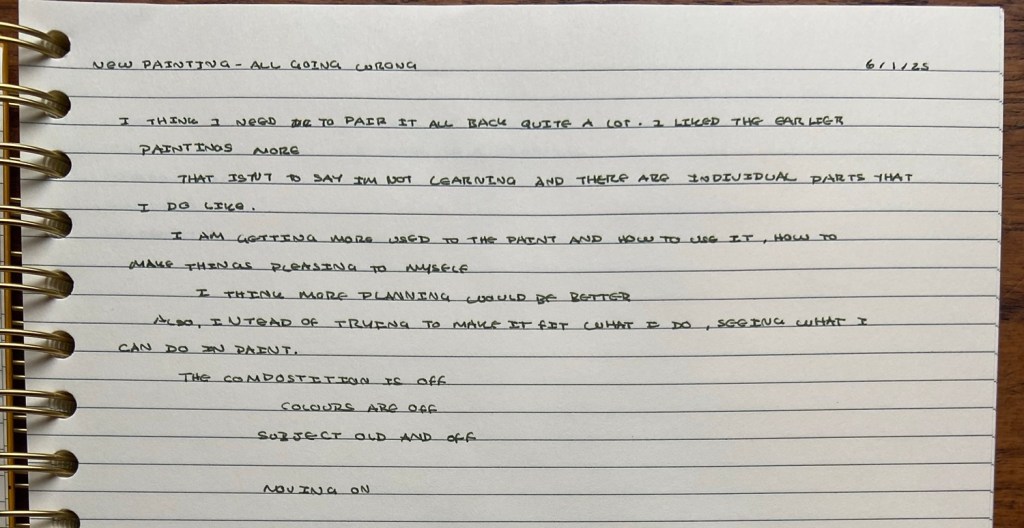 NEW PAINTING - ALL GOING WRONG 6/1/25
I THINK I NEED TO PAIR IT ALL BACK QUITE A LOT. I LIKED THE EARLIER
PAINTINGS MORE
THAT ISN'T TO SAY I'M NOT LEARNING AND THERE ARE INDIVIDUAL PARTS THAT
I DO LIKE.
I AM GETTING MORE USED TO THE PAINT AND HOW TO USE IT, HOW TO
MAKE THINGS PLEASING TO MYSELF
I THINK MORE PLANNING WOULD BE BETTER
ALSO, INTEAD OF TRYING TO MAKE IT FIT WHAT I DO, SEEING WHAT I
CAN DO IN PAINT.
THE COMPOSTITION IS OFF
COLOURS ARE OFF
SUBJECT OLD AND OFF
MOVING ON